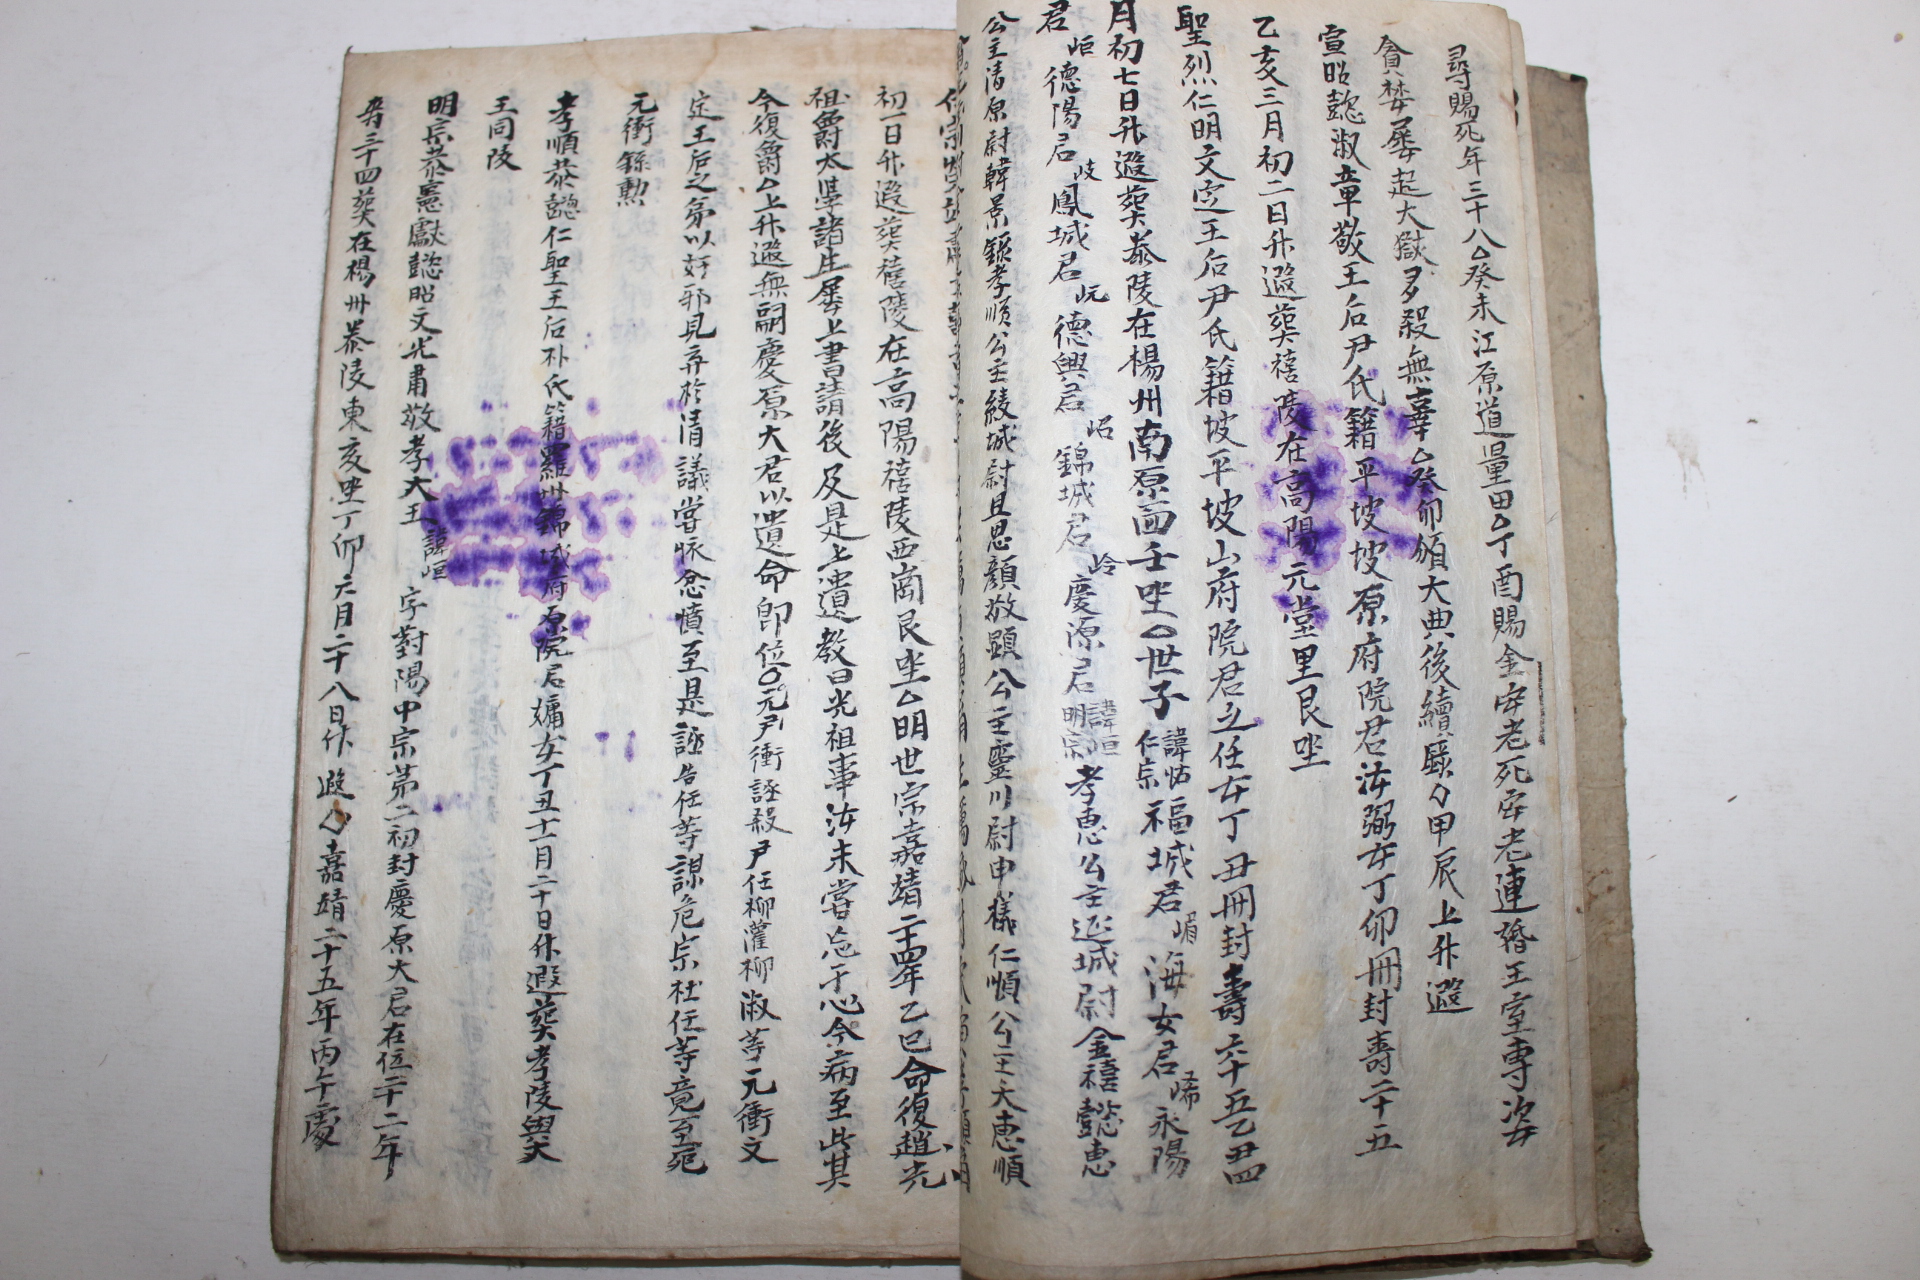 尋賜死年三十八△癸未江原道量田△丁酉賜金安老死安老連婚王室專恣
貪婪屢起大獄多殺無辜△癸卯頒大典後續錄△甲辰上升遐
宣昭懿淑章敬王后尹氏籍平坡坡原府院君汝弼女丁卯冊封壽二十五
乙亥三月初二日升遐葬禧陵在高陽元堂里艮坐
聖烈仁明文定王后尹氏籍坡平坡山府院君之任女丁丑冊封壽六十五乙丑四
月初七日升遐葬泰陵在楊州南原面壬坐△世子諱峼仁宗福城君嵋海安君㟓永陽
君岠德陽君岐鳳城君岏德興君岹錦城君岭慶源君諱峘明宗孝惠公主延城尉金禧懿惠
公主清原尉韓景錄孝順公主綾城尉具思顏敬顯公主靈川尉申檥仁順公主夭惠順
初一日升遐葬禧陵在高陽禧陵西崗艮坐△明世宗嘉靖二十四年乙巳命復趙光
祖爵太學諸生屢上書請後及是上遺教曰光祖事汝未嘗忘于心今病至此其
令復爵△上升遐無嗣慶原大君以遺命卽位○元尹衡誣殺尹任柳灌柳淑等元衡文
定王后之弟以奸邪見弃於清議嘗怀忿憤至是誣告任等謀危宗社任等竟至死
元衡錄勳
孝順恭懿仁聖王后朴氏籍羅州錦城府原院君墉女丁丑十一月二十日升遐葬孝陵與大
王同陵
明宗恭憲獻懿昭文光肅敬孝大王諱峘字對陽中宗第二初封慶原大君在位二十二年
壽三十四葬在楊州泰陵東亥坐丁卯六月二十八日升遐△嘉靖二十五年丙午處